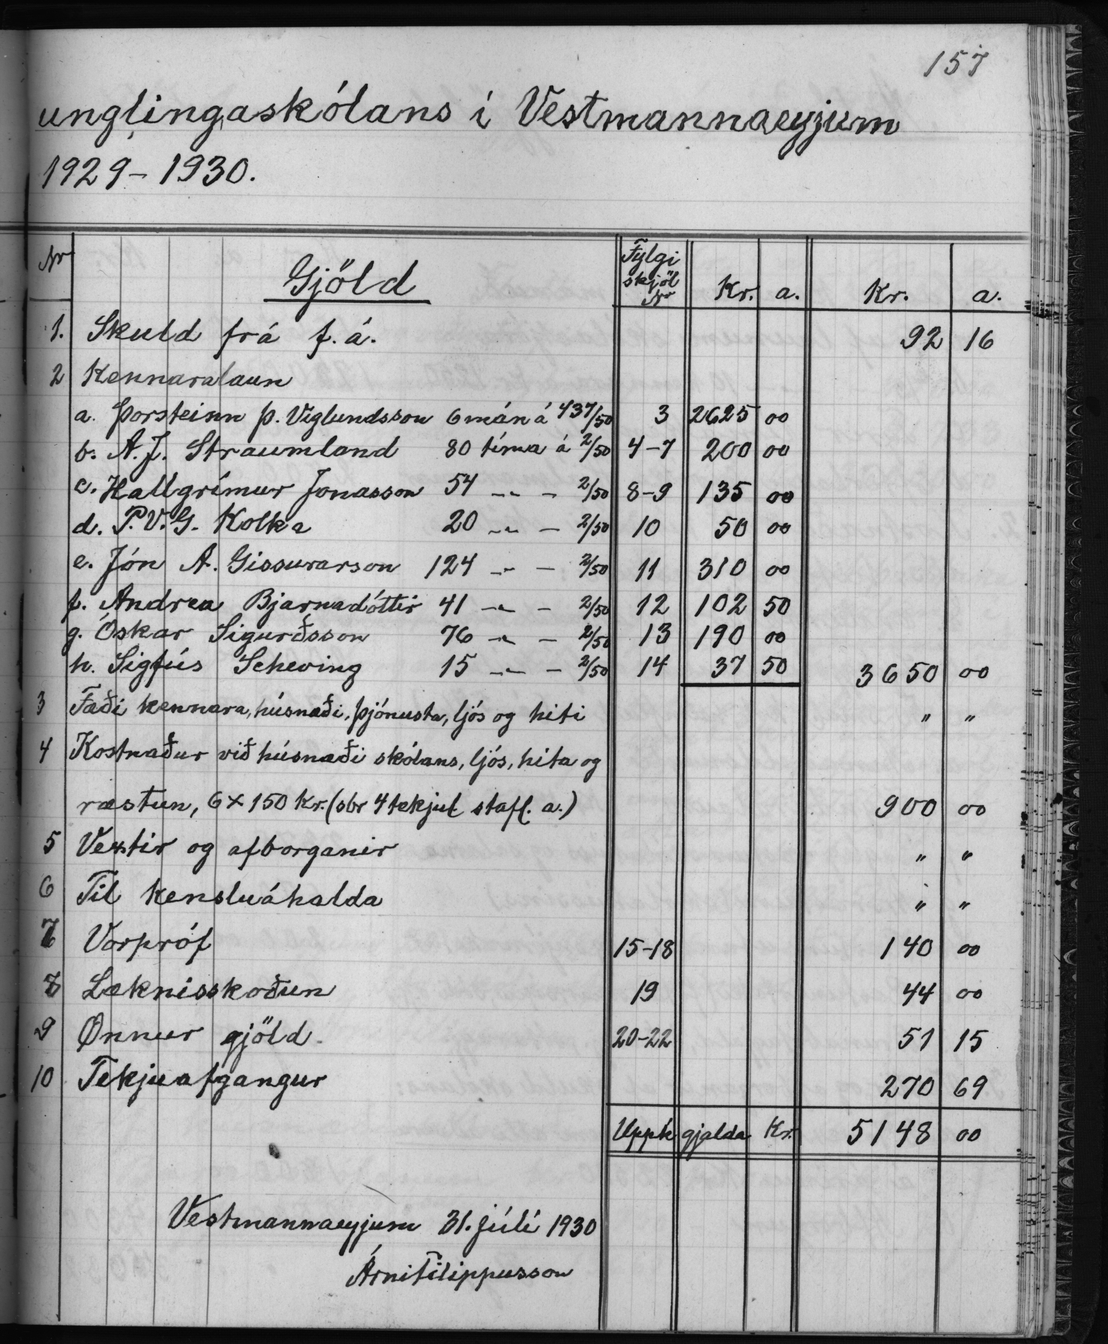 157
unglingaskólans í Vestmannaeyjum
1929-1930.
Nr Gjöld Fylgi skjöl Nr Kr. a. Kr. a.
1. Skuld frá f. á. 92 16
2 Kennaralaun
a. Þorsteinn Þ. Víglundsson 6 mán á 437/50 3 2625 00
b. A.J. Straumland 80 tíma á 2/50 4-7 200 00
c. Hallgrímur Jónasson 54 -"- - 2/50 8-9 135 00
d. P.V.G. Kolka 20 -"- - 2/50 10 50 00
e. Jón A. Gissurarson 124 -"- - 2/50 11 310 00
f. Andrea Bjarnadóttir 41 -"- - 2/50 12 102 50
g. Óskar Sigurðsson 76 -"- - 2/50 13 190 00
h. Sigfús Scheving 15 -"- - 2/50 14 37 50 3650 00
3 Fæði kennara, húsnæði, þjónusta, ljós og hiti " "
4 Kostnaður við húsnæði skólans, ljós, hita og
ræstun, 6 x 150 Kr. (sbr 4 tekjul stafl. a.) 900 00
5 Vextir og afborganir " "
6 Til kensluáhalda " "
7 Vorpróf 15-18 140 00
8 Læknisskoðun 19 44 00
9 Önnur gjöld. 20-22 51 15
10 Tekjuafgangur 270 69
Upph gjalda Kr. 5148 00
Vestmannaeyjum 31. júlí 1930
Árni Filippusson